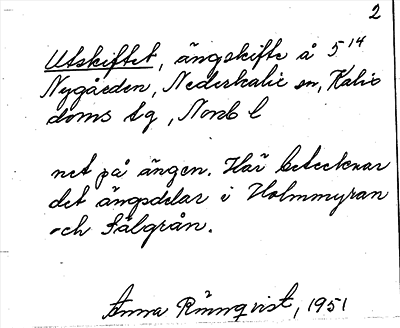 2
Utskiftet, ängskifte å 5¹⁴
Nygården, Nederkalix sn, Kalix
doms tg, Norrb l
net på ängen. Här betecknar
det ängsdelar i Holmmyran
och Sälgrån.
Anna Rönnqvist, 1951